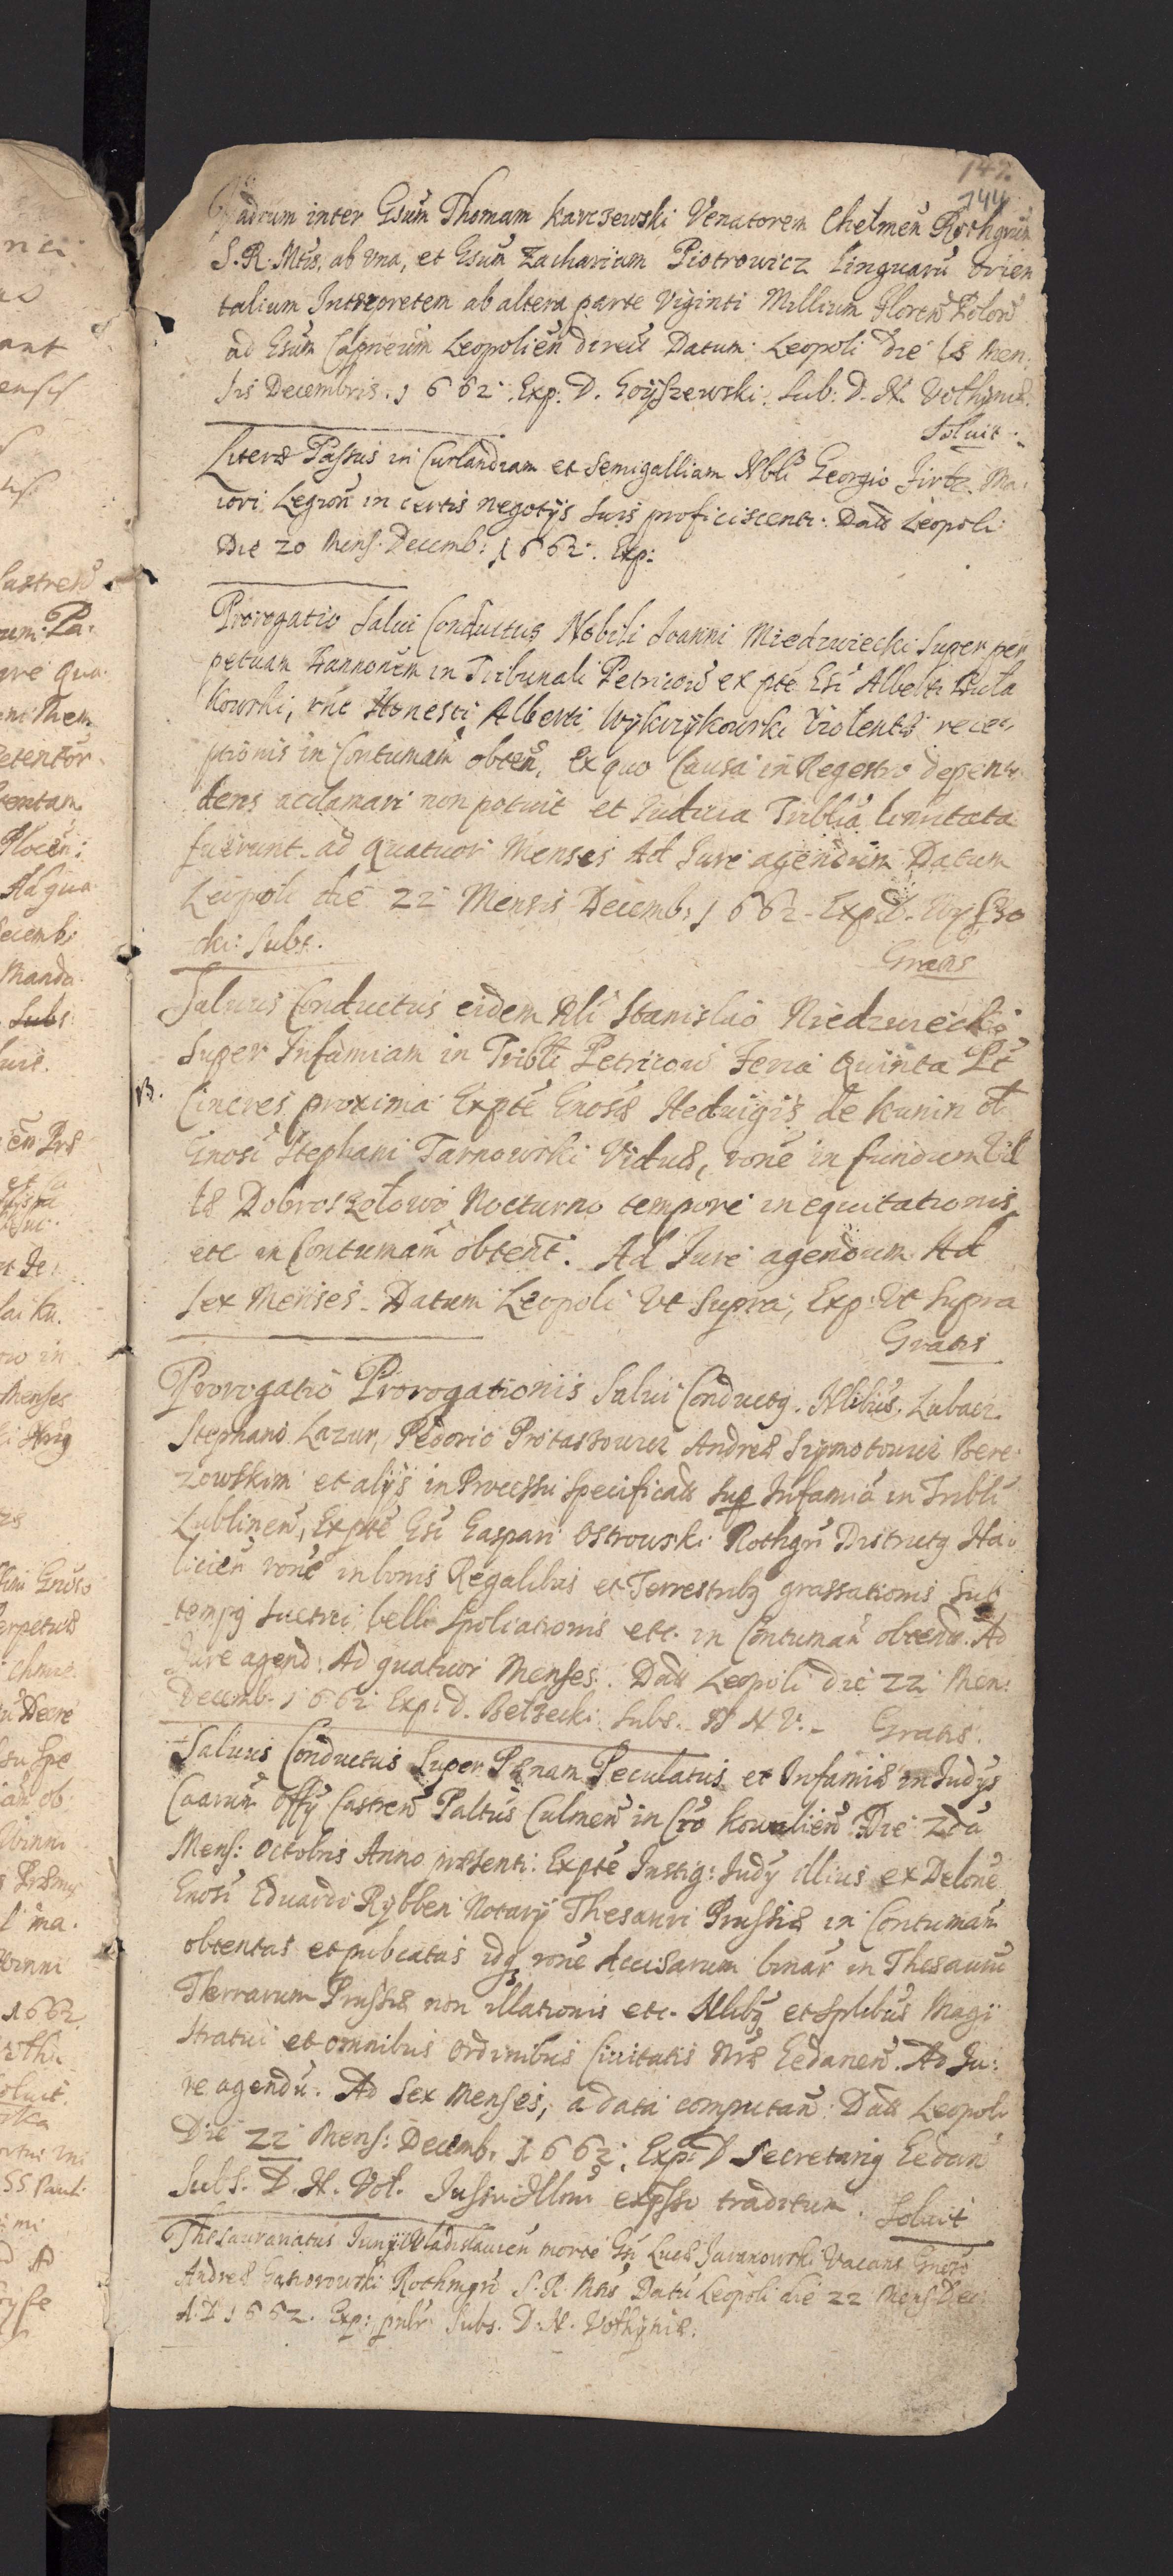 147.
144
Vadium inter Gsum Thomam Karczewski Venatorem Chelmen Rothgrum
S. R. Mtis, ab una, et Gsum Zachariam Piotrowicz Linguaru Orien
talium Interpretem ab altera parte Viginti Millium Floren Polon
ad Gsum Capneum Leopolien Datum Leopoli die 18 Men
sis Decembris. 1662. Exp. D. Goyszewski. Sub. D. N. Volhyniæ.
Soluit.
Literæ Passus in Curlandiam et Semigalliam Nbli Georgio Ma:
iori Legion in certis negotijs suis proficiscenti. Datt Leopoli
Die 20 Mens. Decemb: 1662. Exp:
Prorogatio Salui Conductus Nobili Joanni Miedzwiecki Super per
petuam Bannonem in Tribunali Petricow ex pte Gsi Alberti
kowski, rne Honesti Alberti Wykrzykowski Violentæ rece
ptionis in Contumam obten, Ex quo Causa in Regestro depen
dens acclamari non potuit et Judicia Tribblia limitata
fuerunt ad quatuor Menses Ad Jure agendum Datum
Leopoli die 22 Mensis Decemb: 1662. Exp. D. Wysso
cki: Subs.
Gratis
Saluus Conductus eidem Nli Stanislao Niedzwiecki
Super Infamiam in Tribli Petricow Feria Quinta Pt
Cineres proxima Expte Gnosæ Hedvigis de Kunin ol
Gnosi Stephani Tarnowski Viduæ, rone in fundum Vil
læ Dobroszolowo Nocturno tempore inequitationis
etc in Contumam obtent. Ad Jure agendum Ad
sex Menses. Datum Leopoli Ut Supra, Exp: Ut Supra
Gratis
Prorogatio Prorogationis Salui Conductq. Nlibus. Lubacz
Stephano Lazur, Fedorio Protassowicz Andreæ Szymotowicz Bere
zowskim et alijs in Processu Specificatis sup Infamia in Tribli
Lublinen, Expte Gsi Gaspari Ostrowski Rothgri Districtq Ha
licien rone in bonis Regalibus et Terrestribq grassationis Sub
tempq Suetici belli Spoliationis etc. in Contumam obtenta. Ad
Jure agend: Ad quatuor Menses. Datt Leopoli die 22 Men:
Decemb. 1662 Exp: D. Belzecki Subs. D N V. Gratis.
Saluus Conductus Super Pænam Peculatus et Infamiæ in Judijs
Caarum Offij Castren Palatus Culmen in Cro Kowalien Die 2da
Mens: Octobris Anno præsenti: Expte Instig: Judij illius ex Delone
Gnosi Eduardi Rybben Notarij Thesauri Prussiæ in Contumam
obtentas et publicatas idq rone Accisarum binar in Thesauru
Terrarum Prussiæ non illationis etc. Nlibq et Splibus Magi
stratui et omnibus Ordinibus Ciuitatis Nræ Gedanen. Ad Ju:
re agendu. Ad Sex Menses, a data computan: Datt Leopoli
Die 22 Mens: Decemb. 1662. Exp: D Secretariq Gedan
Subs. D. N. Vol. Jussu Illmi expsso traditum. Soluit
Thesaurariatus Juny Wladislauien morte Gsi Lucæ Jaranowski Vacans Gnoso
Andreæ Gąsiorowski Rothmgro S. R. Mtis Datu Leopoli die 22 Mens Dec:
A. D 1662. Exp: Subs. D. N. Volhyniæ.